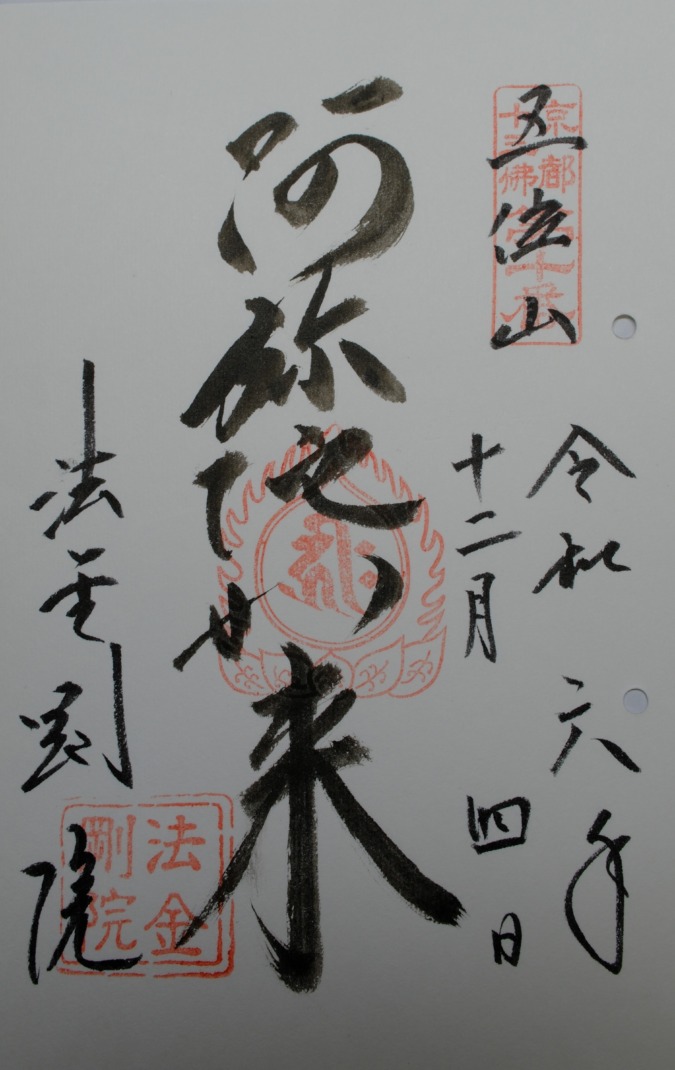 五位山
京都
十三佛
第十番
令和六年
十二月四日
阿弥陀如来
法金剛院
法金
剛院